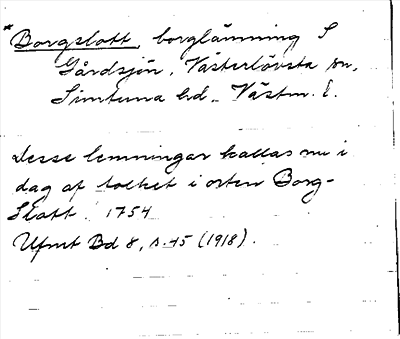 * Borgslott, borglämning S
Gårdsjön, Västerlövsta sn,
Simtuna hd. Västm. l.
desse lemningar kallas nu i
dag af folket i orten Borg-
Slått. 1754
Ufmt Bd 8, s. 45 (1918).